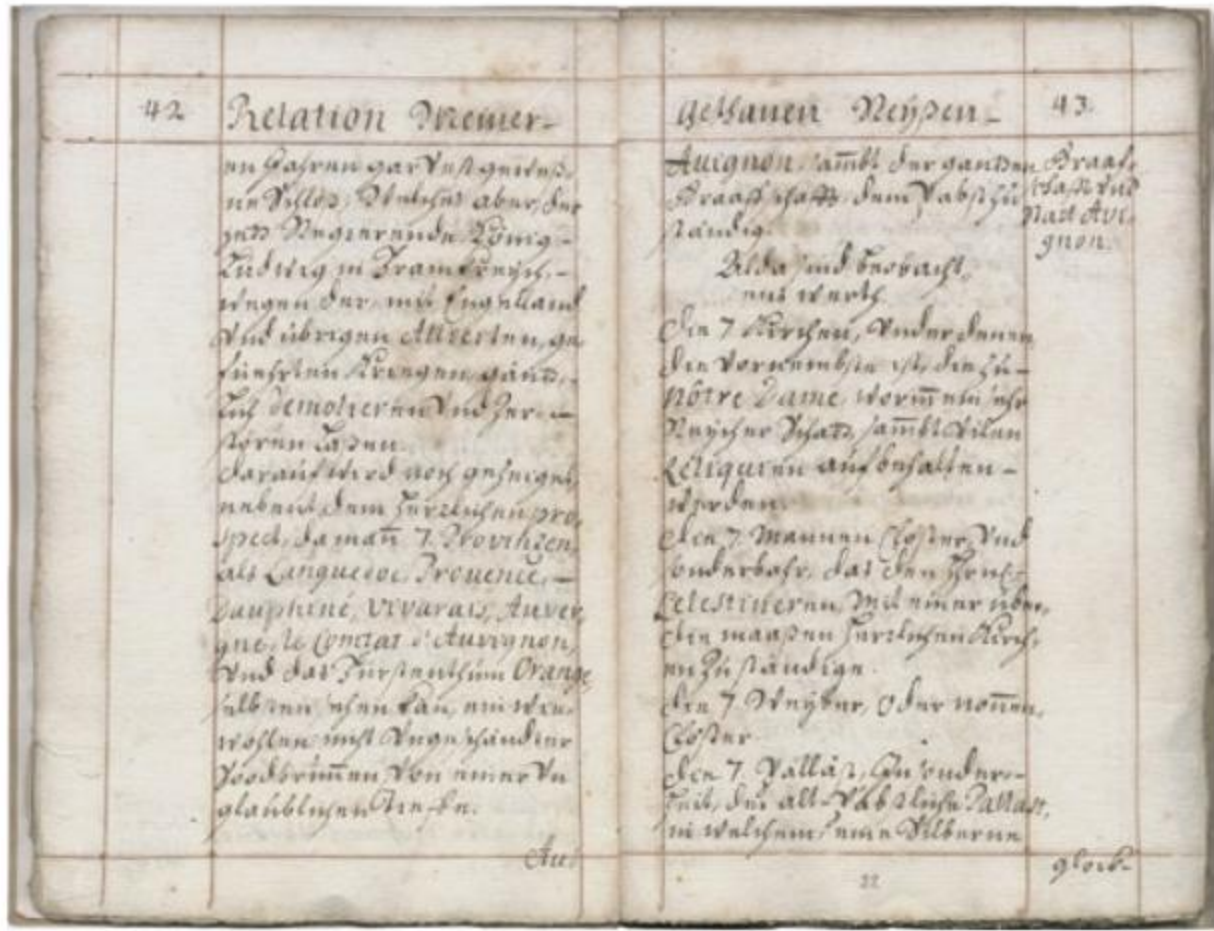 42
Relation Meiner-
en Jahren gar vest geweß-
ne Schloß, Welches aber, der
jetz Regierende König-
Ludwig in Franckreych,-
wegen der, mit Engelland
Vnd übrigen Allierten, ge-
füehrten Kriegen, gäntz-
lich demolieren Vnd Zer-
stören Laßen.
Darauf wird noch gezeiget,
nebent dem herrlichen pro-
spect, da man 7. Provinzen,
als Languedoc, Prouence,-
Dauphiné, Vivarais, Auver-
gne, le Comtat d'Auvignon,
Vnd das Fürstenthum Orange
selbsten sehen kan, ein wie-
wohlen nicht
Soodbrunnen Von einer Vn
glaublichen Tieffe.
Aui
gethanen Reyßen-
43.
Auignon, sambt der gantzen
Graaffschafft, dem Pabst zu
ständig.
Graaf-
schafft Vnd
Statt Avi-
gnon.
Alda sind beobacht-
ens werth.
Die 7 Kirchen, Vnder denen
die Vornembste ist, die zu-
Nôtre Dame, worinn ein sehr
Reycher Schatz, sambt Vilen
Reliquien aufbehalten-
werden.
Die 7. Mannen Closter, Vnd
sonderbahr, das den
Celestineren, Mit einer über-
die maaßen herrlichen Kirch-
en Zuständige.
Die 7 Weyber, Oder nonnen-
Closter
Die 7. Palläst, In sonder-
heit, der alt Päbstliche Pallast,
in welchem, eine Silberne
glock-
22